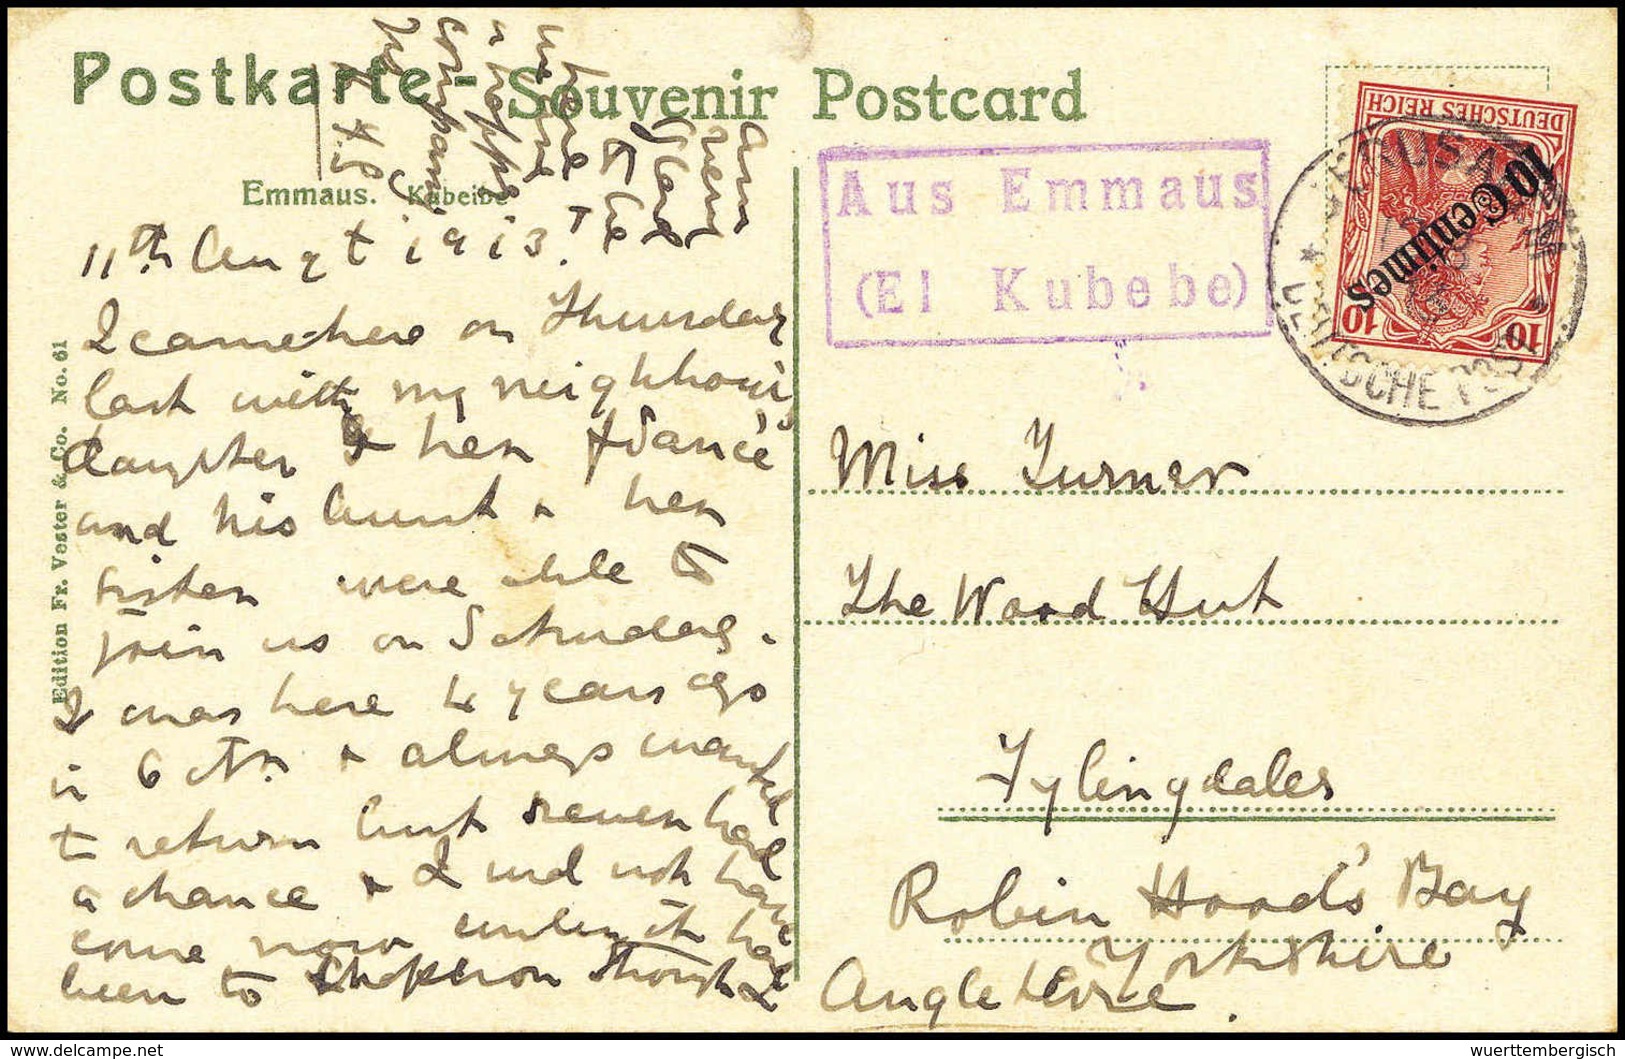 Postkarte - Souvenir Postcard
Emmaus. Kubeibe
Edition Fr. Vester & Co. No. 61
11th Augt 1913.
I came here on Thursday
last with my neighbour's
daughter & her fiancé
and his Aunt & her
sister were able to
join us on Saturday.
I was here 4 years ago
in Oct. & always wanted
to return but never had
a chance & I wd not have
come now unless it had
been to chaperon though I
am
very
glad
to be
here
in
a happy
company
Aus Emmaus
(El Kubebe)
DEUTSCHES REICH
10 Centimes
10 10
JERUSALEM
DEUTSCHE POST
Miss Turner
The Wood Hut
Fylingdales
Robin Hood's Bay
Yorkshire
Angleterre.
delcampe.net
wuerttembergisch